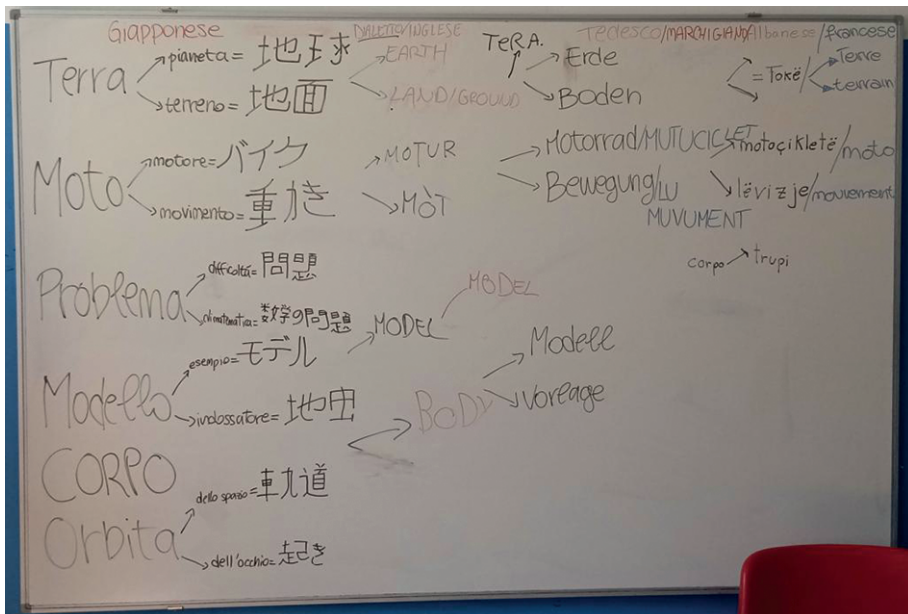 Giapponese DIALETTO/INGLESE Tedesco/MARCHIGIANO/Albanese/francese
Terra
pianeta = 地球
terreno = 地面
EARTH
LAND/GROUND
TeRA.
Erde
Boden
= Tokë/
Terre
terrain
Moto
motore = バイク
movimento = 重き
MOTUR
MÒT
Motorrad/MUTUCICLET
Bewegung/LU
MUVUMENT
motoçikletë/moto
lëvizje/mouvement
corpo
trupi
Problema
difficoltà = 問題
数学の問題
MODEL
MODEL
Modello
esempio = モデル
indossatore =
BODY
Modell
Voreage
CORPO
Orbita
dello spazio = 軌道
dell'occhio = 起き